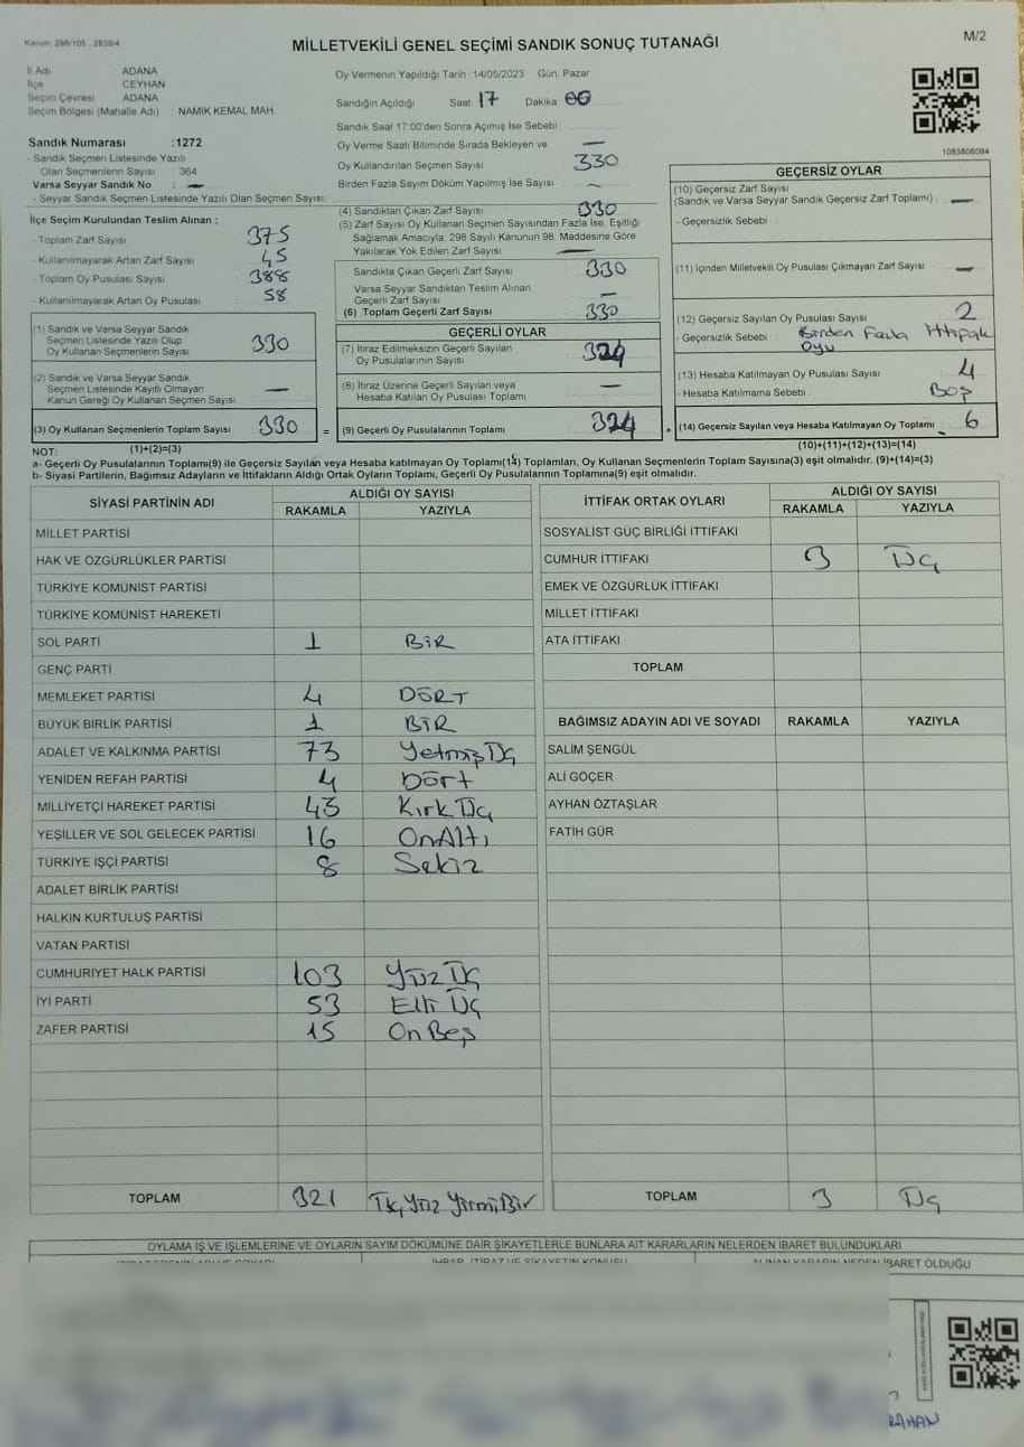 Kanun: 298/105 - 2839/4
MİLLETVEKİLİ GENEL SEÇİMİ SANDIK SONUÇ TUTANAĞI
M/2
İl Adı ADANA
İlçe CEYHAN
Seçim Çevresi ADANA
Seçim Bölgesi (Mahalle Adı) : NAMIK KEMAL MAH.
Sandık Numarası :1272
- Sandık Seçmen Listesinde Yazılı
Olan Seçmenlerin Sayısı : 364
Varsa Seyyar Sandık No : —
- Seyyar Sandık Seçmen Listesinde Yazılı Olan Seçmen Sayısı:
Oy Vermenin Yapıldığı Tarih :14/05/2023 Gün: Pazar
Sandığın Açıldığı Saat: 17 Dakika: 00
Sandık Saat 17:00'den Sonra Açılmış İse Sebebi:
Oy Verme Saati Bitiminde Sırada Bekleyen ve —
Oy Kullandırılan Seçmen Sayısı 330
Birden Fazla Sayım Döküm Yapılmış İse Sayısı —
(4) Sandıktan Çıkan Zarf Sayısı 330
(5) Zarf Sayısı Oy Kullanan Seçmen Sayısından Fazla İse, Eşitliği
Sağlamak Amacıyla, 298 Sayılı Kanunun 98. Maddesine Göre
Yakılarak Yok Edilen Zarf Sayısı —
İlçe Seçim Kurulundan Teslim Alınan :
- Toplam Zarf Sayısı 375
- Kullanılmayarak Artan Zarf Sayısı 45
- Toplam Oy Pusulası Sayısı 388
- Kullanılmayarak Artan Oy Pusulası 58
(1) Sandık ve Varsa Seyyar Sandık
Seçmen Listesinde Yazılı Olup
Oy Kullanan Seçmenlerin Sayısı 330
(2) Sandık ve Varsa Seyyar Sandık
Seçmen Listesinde Kayıtlı Olmayan
Kanun Gereği Oy Kullanan Seçmen Sayısı —
(3) Oy Kullanan Seçmenlerin Toplam Sayısı 330 =
(1)+(2)=(3)
Sandıkta Çıkan Geçerli Zarf Sayısı 330
Varsa Seyyar Sandıktan Teslim Alınan
Geçerli Zarf Sayısı —
(6) Toplam Geçerli Zarf Sayısı 330
GEÇERLİ OYLAR
(7) İtiraz Edilmeksizin Geçerli Sayılan
Oy Pusulalarının Sayısı 324
(8) İtiraz Üzerine Geçerli Sayılan veya
Hesaba Katılan Oy Pusulası Toplamı —
(9) Geçerli Oy Pusulalarının Toplamı 324 +
1083806094
GEÇERSİZ OYLAR
(10) Geçersiz Zarf Sayısı
(Sandık ve Varsa Seyyar Sandık Geçersiz Zarf Toplamı) —
- Geçersizlik Sebebi
(11) İçinden Milletvekili Oy Pusulası Çıkmayan Zarf Sayısı —
(12) Geçersiz Sayılan Oy Pusulası Sayısı 2
- Geçersizlik Sebebi : Birden Fazla İttifak
Oyu
(13) Hesaba Katılmayan Oy Pusulası Sayısı 4
- Hesaba Katılmama Sebebi : Boş
(14) Geçersiz Sayılan veya Hesaba Katılmayan Oy Toplamı 6
(10)+(11)+(12)+(13)=(14)
NOT:
a- Geçerli Oy Pusulalarının Toplamı(9) ile Geçersiz Sayılan veya Hesaba katılmayan Oy Toplamı(14) Toplamları, Oy Kullanan Seçmenlerin Toplam Sayısına(3) eşit olmalıdır. (9)+(14)=(3)
b- Siyasi Partilerin, Bağımsız Adayların ve İttifakların Aldığı Ortak Oyların Toplamı, Geçerli Oy Pusulalarının Toplamına(9) eşit olmalıdır.
SİYASİ PARTİNİN ADI ALDIĞI OY SAYISI
RAKAMLA YAZIYLA
MİLLET PARTİSİ
HAK VE ÖZGÜRLÜKLER PARTİSİ
TÜRKİYE KOMÜNİST PARTİSİ
TÜRKİYE KOMÜNİST HAREKETİ
SOL PARTİ 1 BİR
GENÇ PARTİ
MEMLEKET PARTİSİ 4 DÖRT
BÜYÜK BİRLİK PARTİSİ 1 BİR
ADALET VE KALKINMA PARTİSİ 73 Yetmiş Üç
YENİDEN REFAH PARTİSİ 4 Dört
MİLLİYETÇİ HAREKET PARTİSİ 43 Kırk Üç
YEŞİLLER VE SOL GELECEK PARTİSİ 16 OnAltı
TÜRKİYE İŞÇİ PARTİSİ 8 Sekiz
ADALET BİRLİK PARTİSİ
HALKIN KURTULUŞ PARTİSİ
VATAN PARTİSİ
CUMHURİYET HALK PARTİSİ 103 Yüz Üç
İYİ PARTİ 53 Elli Üç
ZAFER PARTİSİ 15 On Beş
TOPLAM 321 Üç Yüz Yirmi Bir
İTTİFAK ORTAK OYLARI ALDIĞI OY SAYISI
RAKAMLA YAZIYLA
SOSYALİST GÜÇ BİRLİĞİ İTTİFAKI
CUMHUR İTTİFAKI 3 Üç
EMEK VE ÖZGÜRLÜK İTTİFAKI
MİLLET İTTİFAKI
ATA İTTİFAKI
TOPLAM
BAĞIMSIZ ADAYIN ADI VE SOYADI RAKAMLA YAZIYLA
SALİM ŞENGÜL
ALİ GÖÇER
AYHAN ÖZTAŞLAR
FATİH GÜR
TOPLAM 3 Üç
OYLAMA İŞ VE İŞLEMLERİNE VE OYLARIN SAYIM DÖKÜMÜNE DAİR ŞİKAYETLERLE BUNLARA AİT KARARLARIN NELERDEN İBARET BULUNDUKLARI
İHBAR, İTİRAZ VE ŞİKAYETİN KONUSU ALINAN KARARIN NEDEN İBARET OLDUĞU